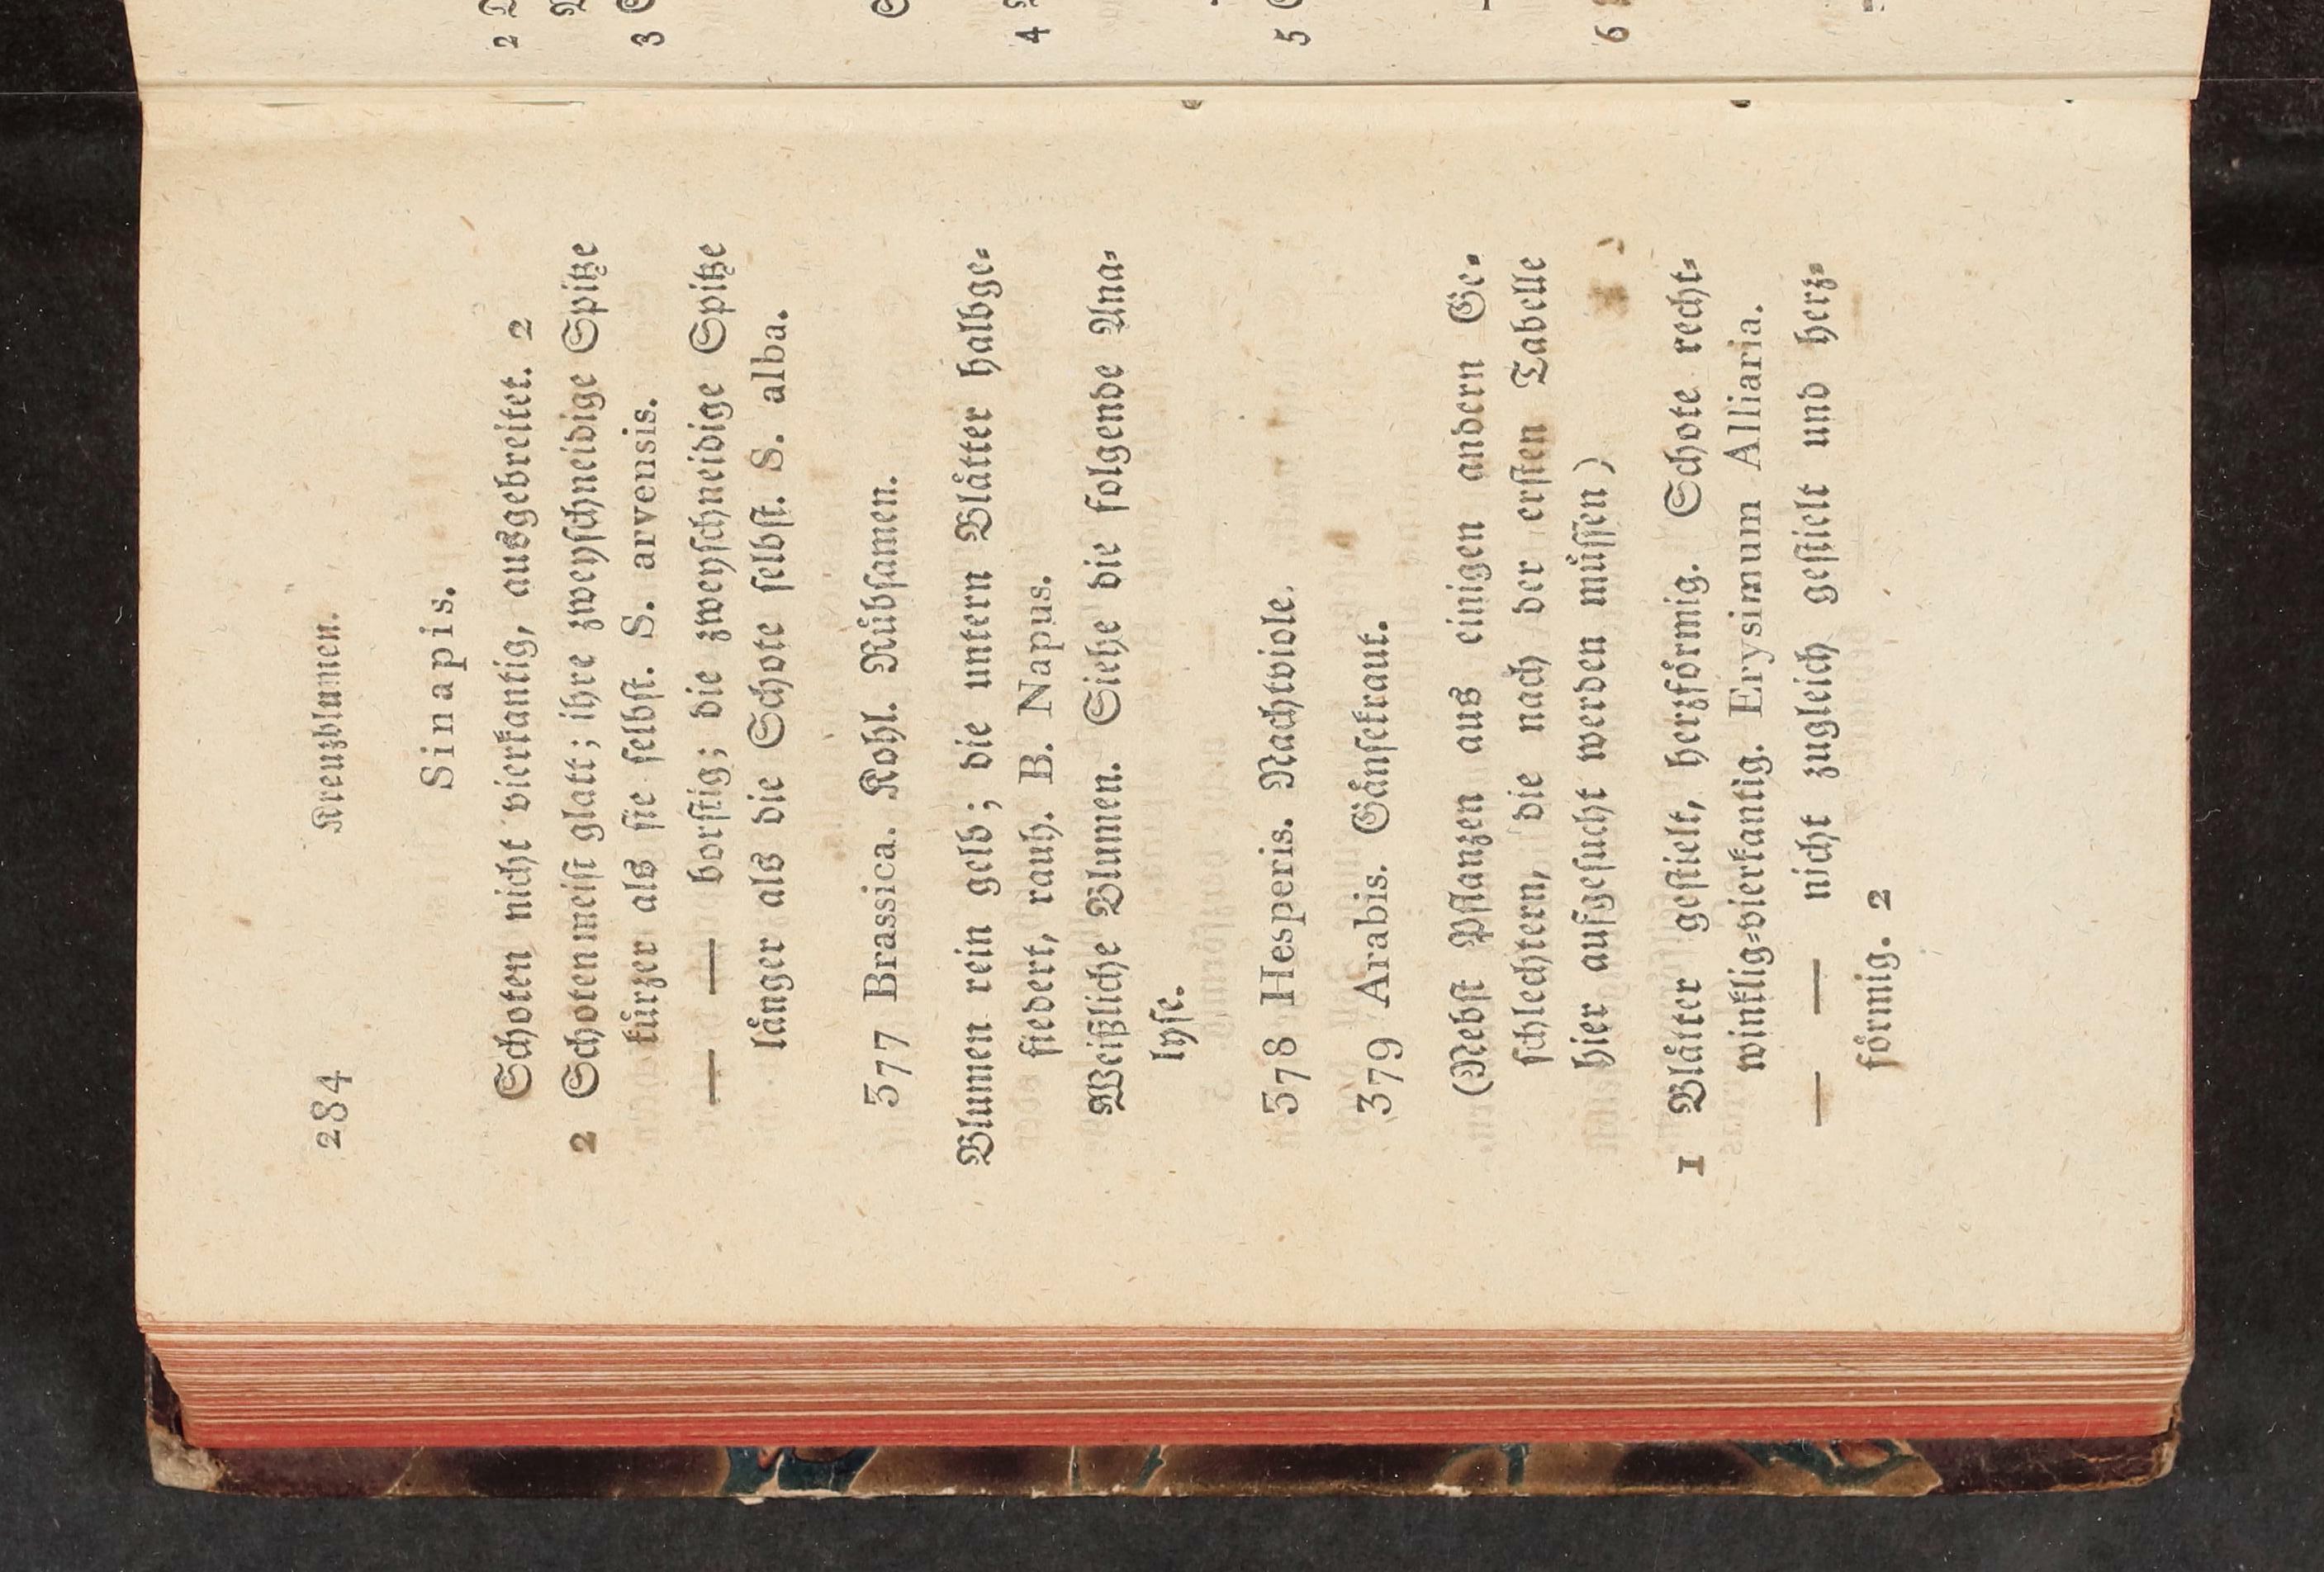 284 Kreuzblumen.
Sinapis.
Schoten nicht vierkantig, ausgebreitet. 2
2 Schoten meist glatt; ihre zweyschneidige Spitze
kuͤrzer als sie selbst. S. arvensis.
— — — borstig; die zweyschneidige Spitze
laͤnger als die Schote selbst. S. alba.
377 Brassica. Kohl. Ruͤbsamen.
Blumen rein gelb; die untern Blaͤtter halbge⸗
fiedert, rauh. B. Napus.
Weißliche Blumen. Siehe die folgende Ana⸗
lyse.
378 Hesperis. Nachtviole.
379 Arabis. Gaͤnsekraut.
(Nebst Pflanzen aus einigen andern Ge⸗
schlechtern, die nach der ersten Tabelle
hier aufgesucht werden muͤssen)
1 Blaͤtter gestielt, herzfoͤrmig. Schote recht⸗
winklig⸗vierkantig. Erysimum Alliaria.
— — — nicht zugleich gestielt und herz⸗
foͤrmig. 2
2
3
4
5
6